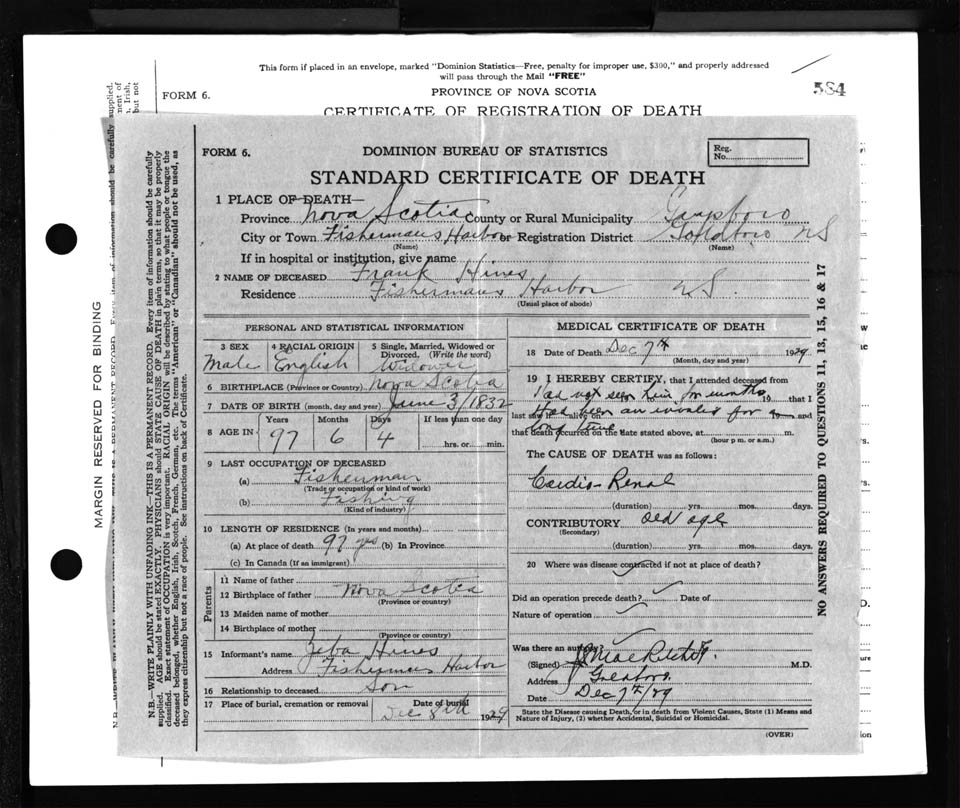 This form if placed in an envelope, marked "Dominion Statistics—Free, penalty for improper use, $300," and properly addressed
will pass through the Mail "FREE"
584
FORM 6.
PROVINCE OF NOVA SCOTIA
CERTIFICATE OF REGISTRATION OF DEATH
MARGIN RESERVED FOR BINDING
N.B.—WRITE PLAINLY WITH UNFADING INK—THIS IS A PERMANENT RECORD. Every item of information should be carefully
supplied. AGE should be stated EXACTLY. PHYSICIANS should STATE CAUSE OF DEATH in plain terms, so that it may be properly
classified. Exact statement of OCCUPATION is very important. RACIAL ORIGIN will be described by stating to what people or tongue the
deceased belonged, whether English, Irish, Scotch, French, German, etc. The terms "American" or "Canadian" should not be used, as
they express citizenship but not a race of people. See instructions on back of Certificate.
FORM 6.
DOMINION BUREAU OF STATISTICS
Reg.
No.
STANDARD CERTIFICATE OF DEATH
1 PLACE OF DEATH—
Province Nova Scotia County or Rural Municipality Guysboro
City or Town Fishermans Harbor or Registration District NS
(Name) (Name)
If in hospital or institution, give name
2 NAME OF DECEASED Frank Hines
Residence Fishermans Harbor NS.
(Usual place of abode)
PERSONAL AND STATISTICAL INFORMATION
3 SEX 4 RACIAL ORIGIN 5 Single, Married, Widowed or
Divorced. (Write the word)
Male English Widower
6 BIRTHPLACE (Province or Country) Nova Scotia
7 DATE OF BIRTH (month, day and year) June 3/1832
8 AGE IN Years Months Days If less than one day
97 6 4 hrs. or min.
9 LAST OCCUPATION OF DECEASED
(a) Fisherman
(Trade or occupation or kind of work)
(b) Fishing
(Kind of industry)
10 LENGTH OF RESIDENCE (In years and months)
(a) At place of death 97 yrs (b) In Province
(c) In Canada (If an immigrant)
Parents
11 Name of father
12 Birthplace of father Nova Scotia
(Province or country)
13 Maiden name of mother
14 Birthplace of mother
(Province or country)
15 Informant's name Zeba Hines
Address Fishermans Harbor
16 Relationship to deceased Son
17 Place of burial, cremation or removal Date of burial
Dec 8th 1929
MEDICAL CERTIFICATE OF DEATH
18 Date of Death Dec 7th 1929
(Month, day and year)
19 I HEREBY CERTIFY, that I attended deceased from
Had not seen him for months 19 that I
last saw h alive on Had been an invalid for 19 and
long time
that death occurred on the date stated above, at m.
(hour p m. or a.m.)
The CAUSE OF DEATH was as follows:
Cardio-Renal
(duration) yrs. mos. days.
CONTRIBUTORY old age
(Secondary)
(duration) yrs. mos. days.
20 Where was disease contracted if not at place of death?
Did an operation precede death? Date of
Nature of operation
Was there an autopsy?
(Signed) M.D.
Address
Date Dec 7th/29
State the Disease causing Death, or in death from Violent Causes, State (1) Means and
Nature of Injury, (2) whether Accidental, Suicidal or Homicidal.
(OVER)
NO ANSWERS REQUIRED TO QUESTIONS 11, 13, 15, 16 & 17